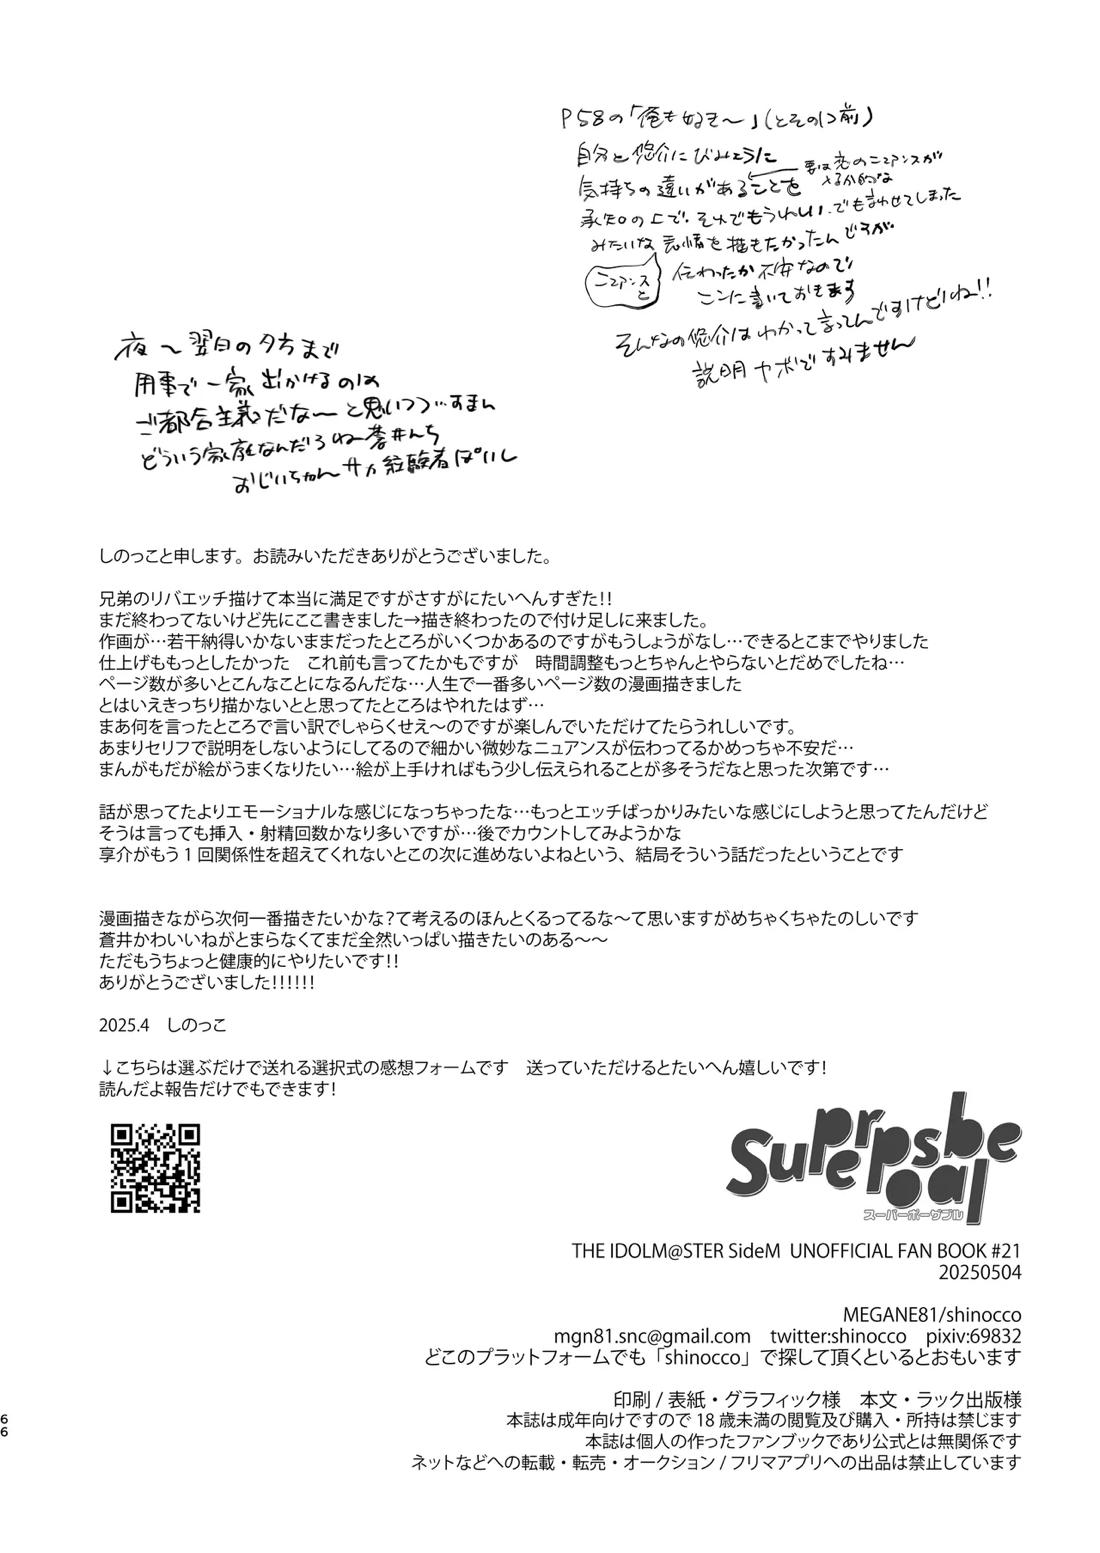 P58の「俺も好き〜」(とその1つ前)
自分と悠介にびみょうに
気持ちの違いがあることを
要は恋のニュアンスが
入るか的な
承知の上で、それでもうれしい、でも言わせてしまった
みたいな表情を描きたかったんですが
ニュアンスと
伝わったか不安なので
ここに書いておきます
そんなの悠介はわかって言ってんですけどね!!
説明ヤボですみません
夜〜翌日の夕方まで
用事で一家出かけるのは
ご都合主義だな〜と思いつつ…すまん
どういう家庭なんだろね蒼井んち
おじいちゃんサッカー経験者ぽいし
しのっこと申します。お読みいただきありがとうございました。
兄弟のリバエッチ描けて本当に満足ですがさすがにたいへんすぎた!!
まだ終わってないけど先にここ書きました→描き終わったので付け足しに来ました。
作画が…若干納得いかないままだったところがいくつかあるのですがもうしょうがなし…できるとこまでやりました
仕上げももっとしたかった　これ前も言ってたかもですが　時間調整もっとちゃんとやらないとだめでしたね…
ページ数が多いとこんなことになるんだな…人生で一番多いページ数の漫画描きました
とはいえきっちり描かないとと思ってたところはやれたはず…
まあ何を言ったところで言い訳でしゃらくせえ〜のですが楽しんでいただけてたらうれしいです。
あまりセリフで説明をしないようにしてるので細かい微妙なニュアンスが伝わってるかめっちゃ不安だ…
まんがもだが絵がうまくなりたい…絵が上手ければもう少し伝えられることが多そうだなと思った次第です…
話が思ってたよりエモーショナルな感じになっちゃったな…もっとエッチばっかりみたいな感じにしようと思ってたんだけど
そうは言っても挿入・射精回数かなり多いですが…後でカウントしてみようかな
享介がもう1回関係性を超えてくれないとこの次に進めないよねという、結局そういう話だったということです
漫画描きながら次何一番描きたいかな?て考えるのほんとくるってるな〜て思いますがめちゃくちゃたのしいです
蒼井かわいいねがとまらなくてまだ全然いっぱい描きたいのある〜〜
ただもうちょっと健康的にやりたいです!!
ありがとうございました!!!!!!
2025.4　しのっこ
↓こちらは選ぶだけで送れる選択式の感想フォームです　送っていただけるとたいへん嬉しいです!
読んだよ報告だけでもできます!
Superposbeal
スーパーポーザブル
THE IDOLM@STER SideM UNOFFICIAL FAN BOOK #21
20250504
MEGANE81/shinocco
mgn81.snc@gmail.com　twitter:shinocco　pixiv:69832
どこのプラットフォームでも「shinocco」で探して頂くといるとおもいます
印刷/表紙・グラフィック様　本文・ラック出版様
本誌は成年向けですので18歳未満の閲覧及び購入・所持は禁じます
本誌は個人の作ったファンブックであり公式とは無関係です
ネットなどへの転載・転売・オークション/フリマアプリへの出品は禁止しています
66